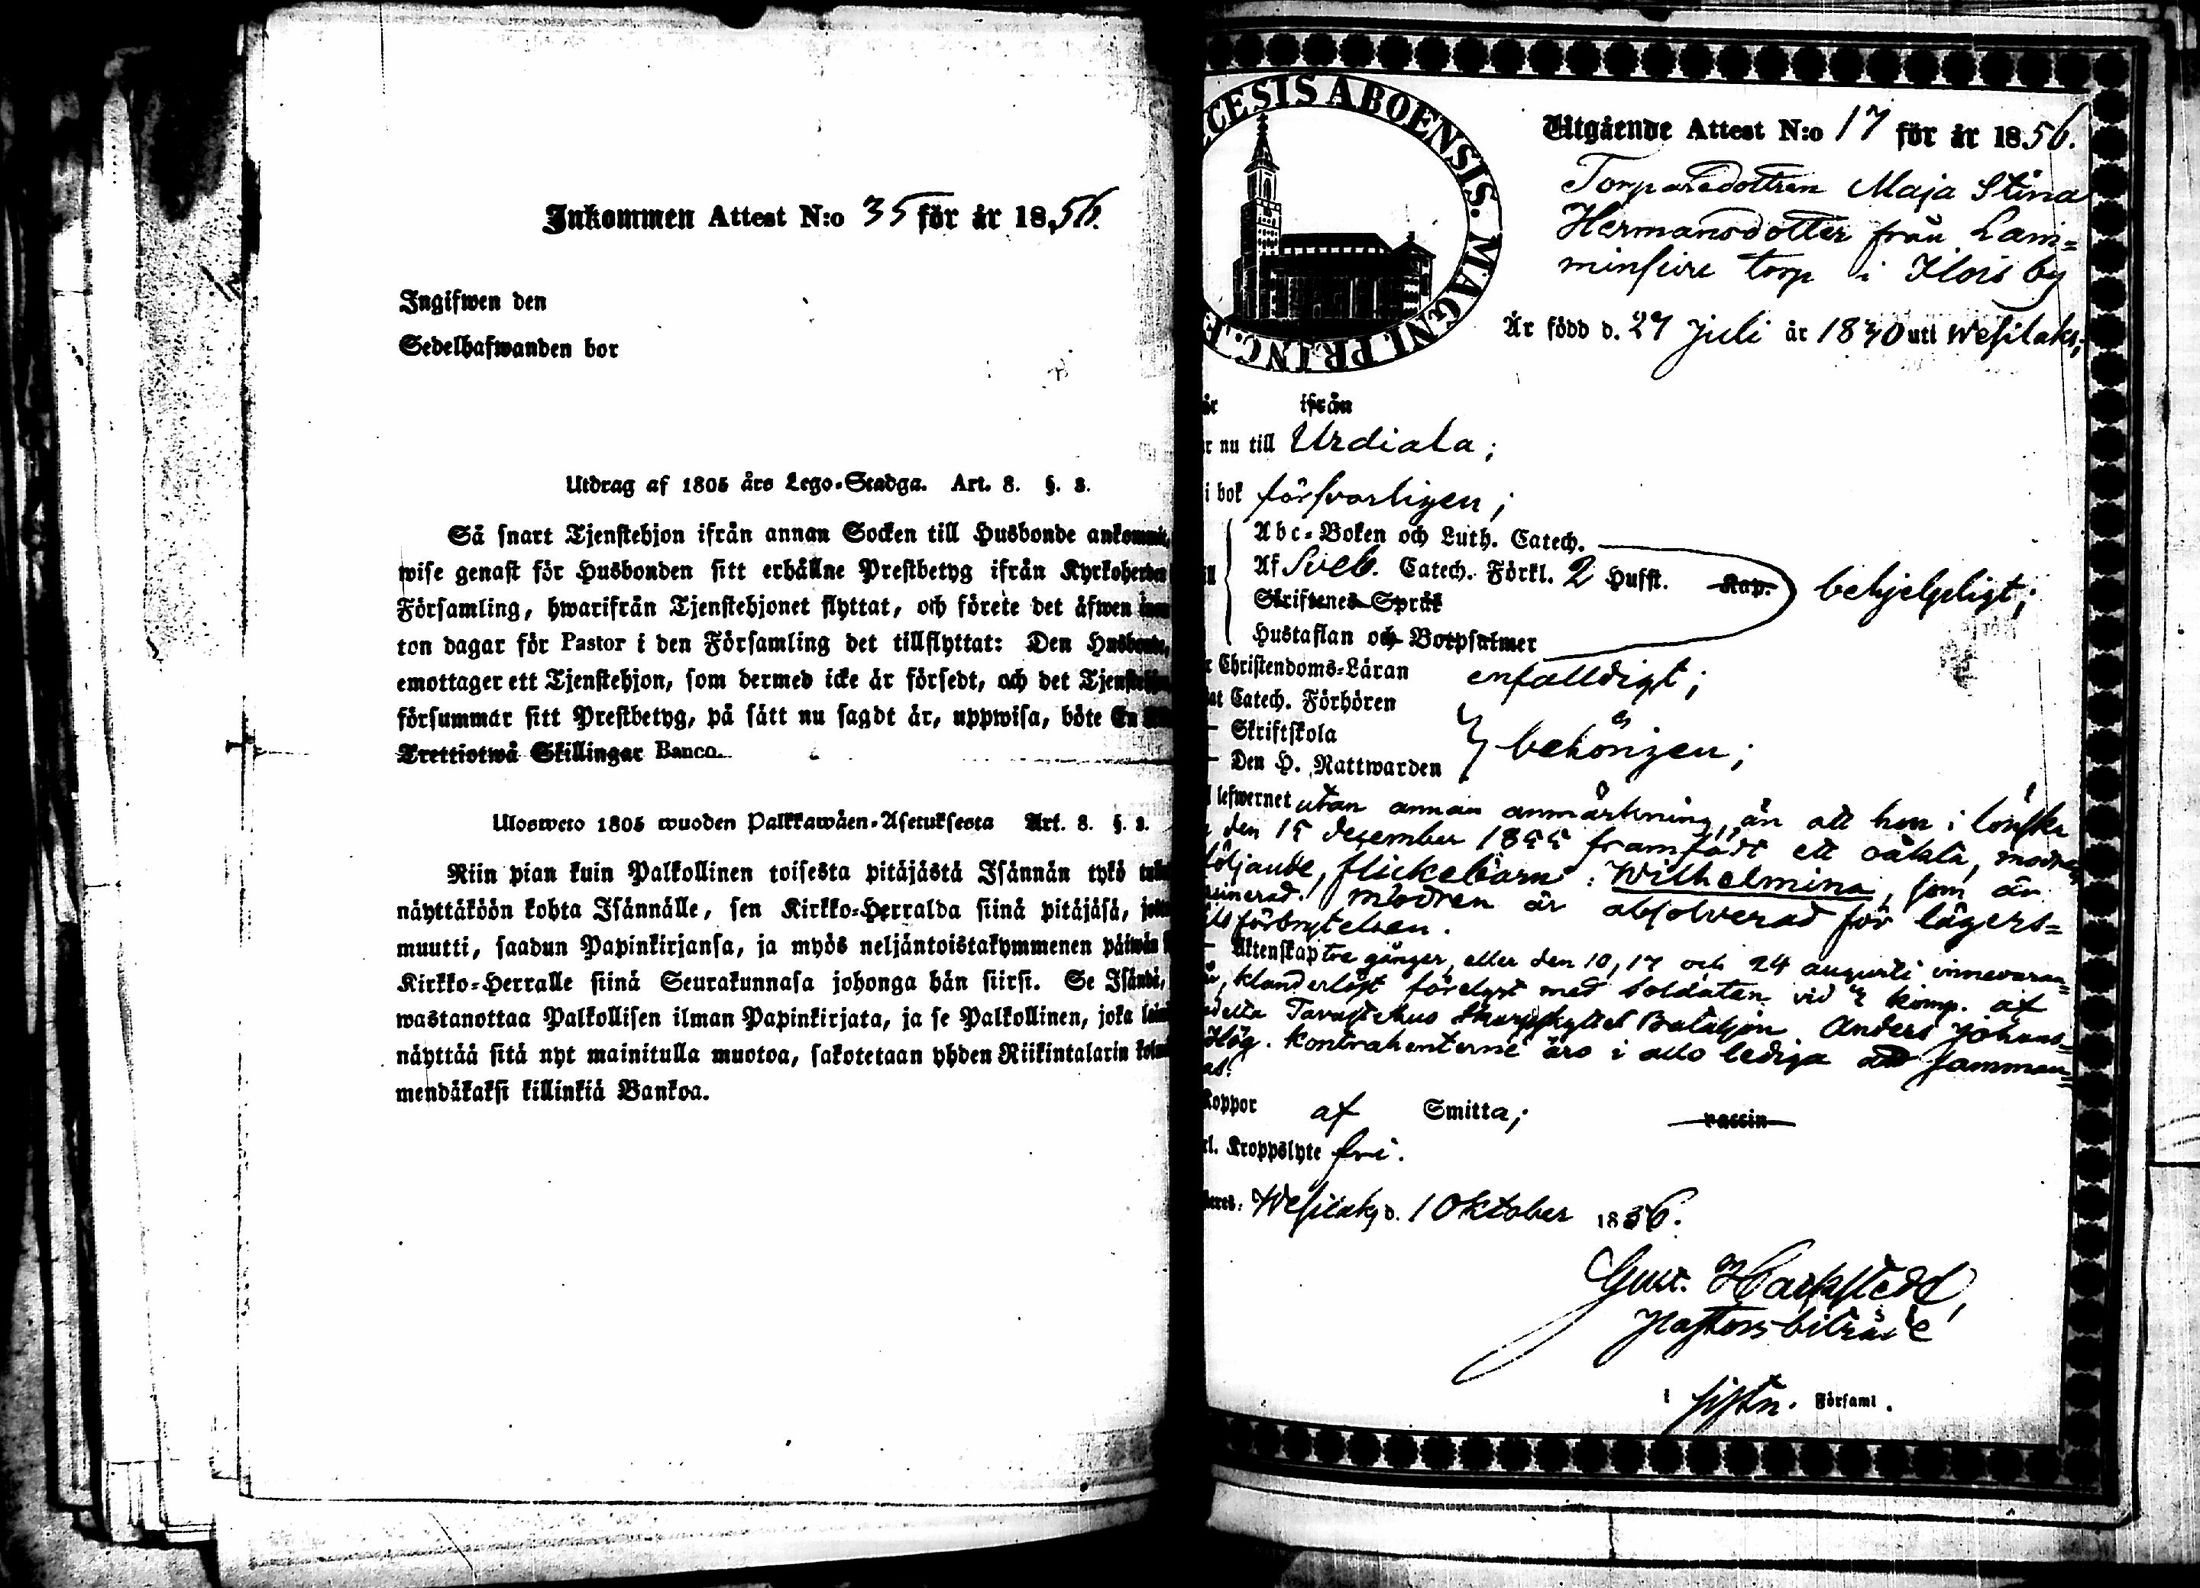 Inkommen Attest N:o 35 för år 1856.
Ingifwen den
Sedelhafwanden bor
Utdrag af 1805 års Lego-Stadga. Art. 8. §. 8.
Så snart Tjenstehjon ifrån annan Socken till Husbonde ankommit,
wise genast för Husbonden sitt erhållne Prestbetyg ifrån Kyrkoherden
Församling, hwarifrån Tjenstehjonet flyttat, och förete det äfwen inom
ton dagar för Pastor i den Församling det tillflyttat: Den Husbonde,
emottager ett Tjenstehjon, som dermed icke är försedt, och det Tjenstehjon
försummar sitt Prestbetyg, på sätt nu sagdt är, uppwisa, böte En
Trettiotwå Skillingar Banco.
Ulosweto 1805 wuoden Palkkawäen-Asetuksesta Art. 8. §.
Niin pian kuin Palkollinen toisesta pitäjästä Isännän tykö
näyttäköön kohta Isännälle, sen Kirkko-Herralda siinä pitäjäsä,
muutti, saadun Papinkirjansa, ja myös neljäntoistakymmenen päiwän
Kirkko-Herralle siinä Seurakunnasa johonga hän siirsi. Se Isändä,
wastanottaa Palkollisen ilman Papinkirjata, ja se Palkollinen, joka
näyttää sitä nyt mainitulla muotoa, sakotetaan yhden Riikintalarin
mendäkaksi killinkiä Bankoa.
CESIS ABOENSIS. MAGNI. PRINC. F
Utgående Attest N:o 17 för år 1856.
Torparedottren Maja Stina
Hermansdotter från Lam=
minsivu torp i Ilois by
Är född d. 27 Juli år 1830 uti Wesilaks;
ifrån
nu till Urdiala;
i bok försvarligen;
Abc-Boken och Luth. Catech.
Af Sveb. Catech. Förkl. 2 Hufst. Kap. behjelpligt;
Skriftenes Språk
Hustaflan och Botpsalmer
Christendoms-Läran enfalldigt;
Catech. Förhören
— Skriftskola
behörigen;
— Den H. Nattwarden
lefwernet utan annan anmärkning, än att hon i lönska
den 15 december 1855 framfödt ett oäkta, modren
följande, flickebarn: Wilhelmina, som är
Modren är absolverad för lägers=
förbrytelsen.
— Äktenskap tre gånger, eller den 10, 17 och 24 augusti innevaran=
klanderlöst förelyst med Soldaten vid 2 komp. af
Tavastehus Skarpskytte Bataljon Anders Johans=
Hög. Kontrahenterne äro i allo lediga att samman=
Koppor af Smitta; vaccin
Kroppslyte fri.
Wesilaks d. 1 Oktober 1856.
Gust. Hackstedt,
Pastorsbiträde
i sistn. Församl.